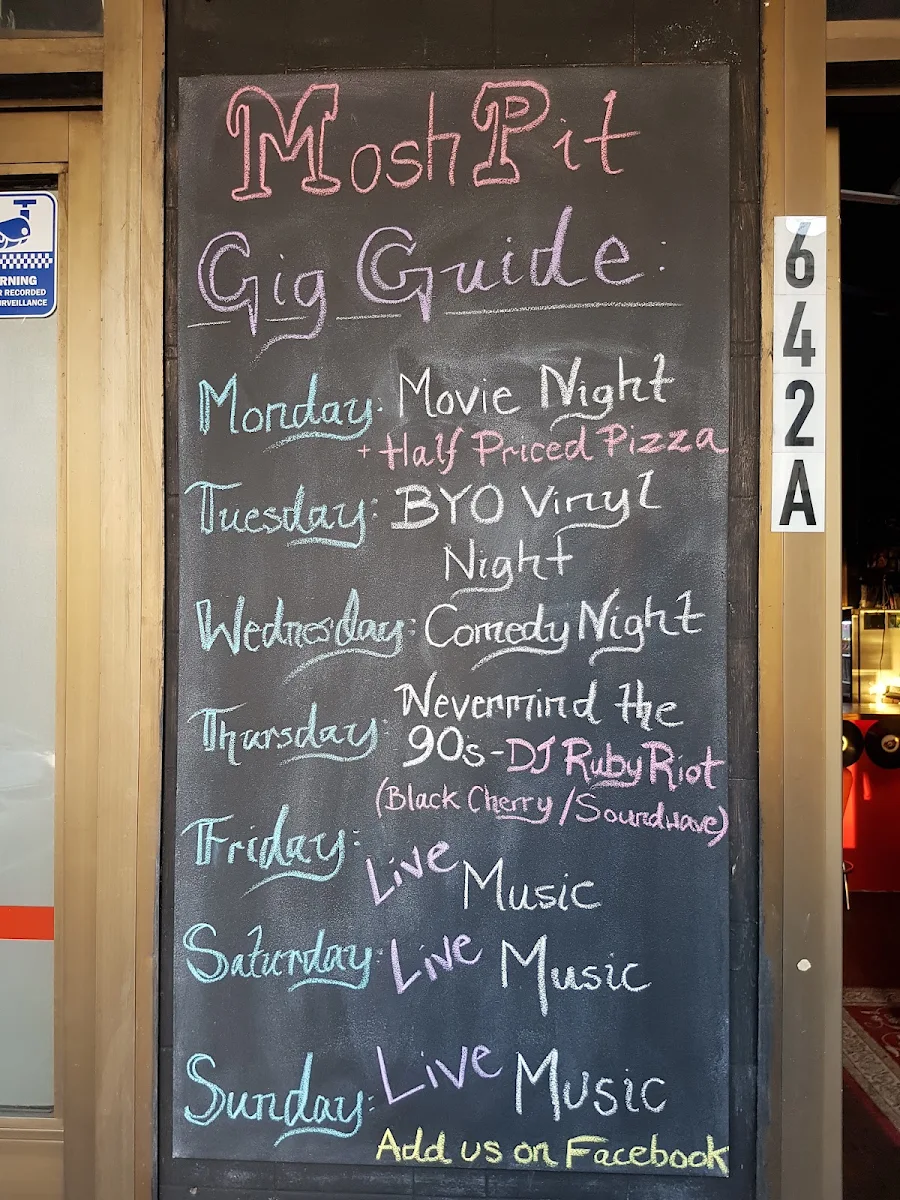 Mosh Pit
Gig Guide:
Monday: Movie Night
+ Half Priced Pizza
Tuesday: BYO Vinyl
Night
Wednesday: Comedy Night
Thursday: Nevermind the
90s - DJ Ruby Riot
(Black Cherry / Soundwave)
Friday: Live Music
Saturday: Live Music
Sunday: Live Music
Add us on Facebook
642A
RNING
RECORDED
RVEILLANCE